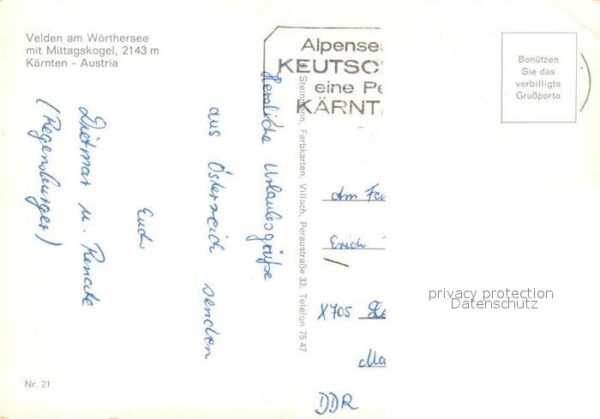 Velden am Wörthersee
mit Mittagskogel, 2143 m
Kärnten - Austria
Herzliche Urlaubsgrüße
aus Österreich senden
Euch
Dietmar u. Renate
(Regensburger)
Nr. 21
Steinmann, Farbkarten, Villach, Peraustraße 33, Telefon 75 47
Alpensee
KEUTSC
eine Pe
KÄRNT
Benützen
Sie das
verbilligte
Grußporto
Am
Erich
X705
DDR
privacy protection
Datenschutz